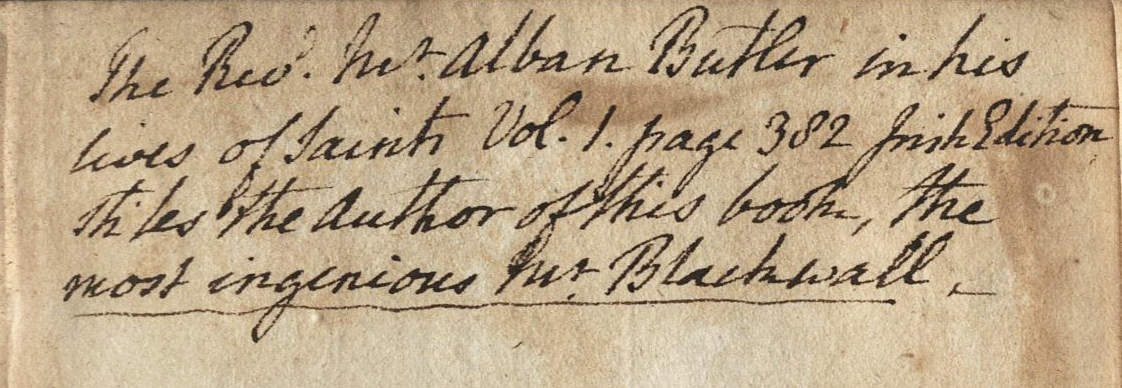 The Revd. Mr. Alban Butler in his
lives of Saints Vol. 1. page 382 Irish Edition
stiles the Author of this book, the
most ingenious Mr. Blackwall.